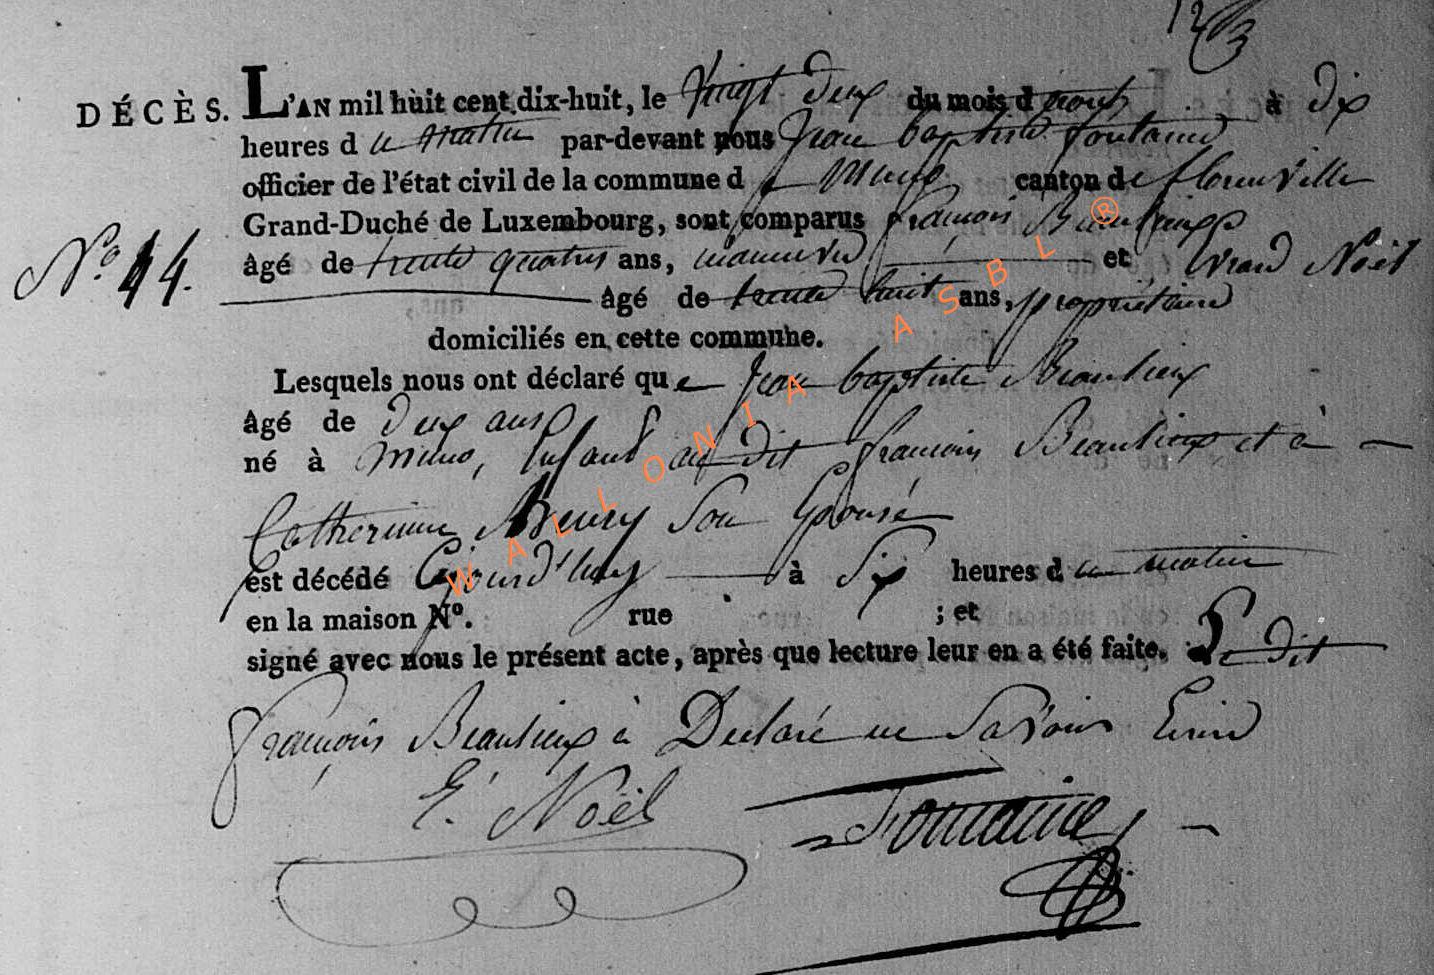 DÉCÈS. L'AN mil huit cent dix-huit, le vingt deux du mois d'aout à Dix
heures du matin par-devant nous Jean baptiste fontaine
officier de l'état civil de la commune de Muno canton de florenville
Grand-Duché de Luxembourg, sont comparus françois Beaulieux
No 44.
âgé de trente quatre ans, manuvre et Noël
âgé de trente huit ans, propriétaire
domiciliés en cette commune.
Lesquels nous ont déclaré que Jean baptiste Beaulieux
âgé de Deux ans
né à Muno, Enfant au dit françois Beaulieux et à
Catherinne Son Epouse
est décédé à Six heures du matin
en la maison No. rue ; et
signé avec nous le présent acte, après que lecture leur en a été faite. Le dit
françois Beaulieux à Declaré ne Savoir
E. Noël Fontaine
WALLONIA ASBL ®